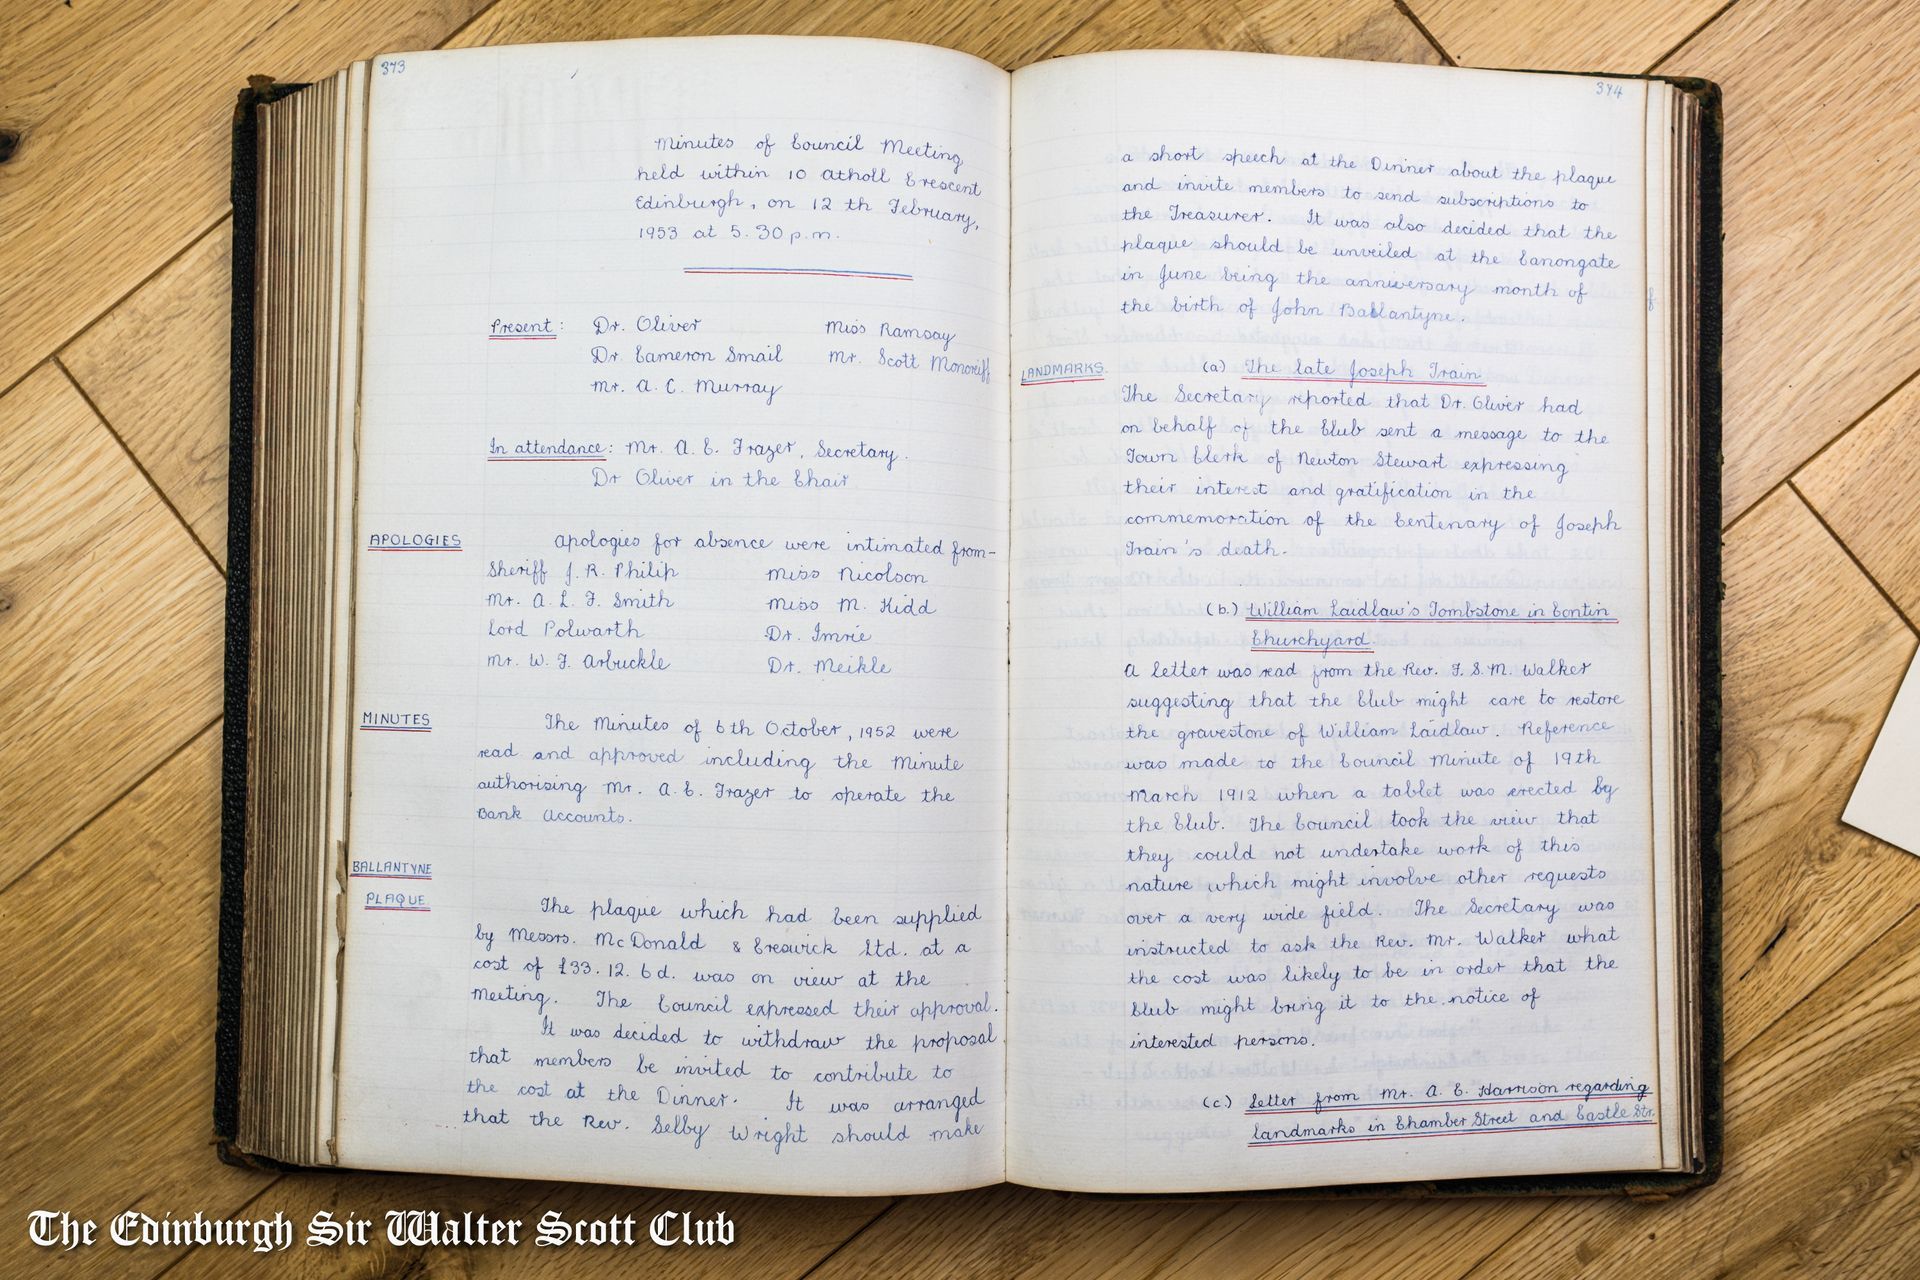 373
Minutes of Council Meeting
held within 10 Atholl Crescent
Edinburgh, on 12 th February,
1953 at 5.30 p.m.
Present: Dr. Oliver Miss Ramsay
Dr. Cameron Smail Mr. Scott Moncreiff
Mr. A. C. Murray
In attendance: Mr. A. C. Frazer, Secretary.
Dr Oliver in the Chair
APOLOGIES Apologies for absence were intimated from-
Sheriff J. R. Philip Miss Nicolson
Mr. A. L. F. Smith Miss M. Kidd
Lord Polwarth Dr. Imrie
Mr. W. F. Arbuckle Dr. Meikle
MINUTES The Minutes of 6th October, 1952 were
read and approved including the Minute
authorising Mr. A. C. Frazer to operate the
Bank Accounts.
BALLANTYNE
PLAQUE.
The plaque which had been supplied
by Messrs. McDonald & Creswick Ltd. at a
cost of £33.12.6d. was on view at the
meeting. The Council expressed their approval.
It was decided to withdraw the proposal
that members be invited to contribute to
the cost at the Dinner. It was arranged
that the Rev. Selby Wright should make
374
a short speech at the Dinner about the plaque
and invite members to send subscriptions to
the Treasurer. It was also decided that the
plaque should be unveiled at the Canongate
in June being the anniversary month of
the birth of John Ballantyne.
LANDMARKS. (a) The late Joseph Train
The Secretary reported that Dr. Oliver had
on behalf of the Club sent a message to the
Town Clerk of Newton Stewart expressing
their interest and gratification in the
commemoration of the Centenary of Joseph
Train's death.
(b.) William Laidlaw's Tombstone in Contin
Churchyard.
A letter was read from the Rev. F. S. M. Walker
suggesting that the Club might care to restore
the gravestone of William Laidlaw. Reference
was made to the Council Minute of 19th
March 1912 when a tablet was erected by
the Club. The Council took the view that
they could not undertake work of this
nature which might involve other requests
over a very wide field. The Secretary was
instructed to ask the Rev. Mr. Walker what
the cost was likely to be in order that the
Club might bring it to the notice of
interested persons.
(c) Letter from Mr. A. E. Harrison regarding
landmarks in Chamber Street and Castle Str.
The Edinburgh Sir Walter Scott Club